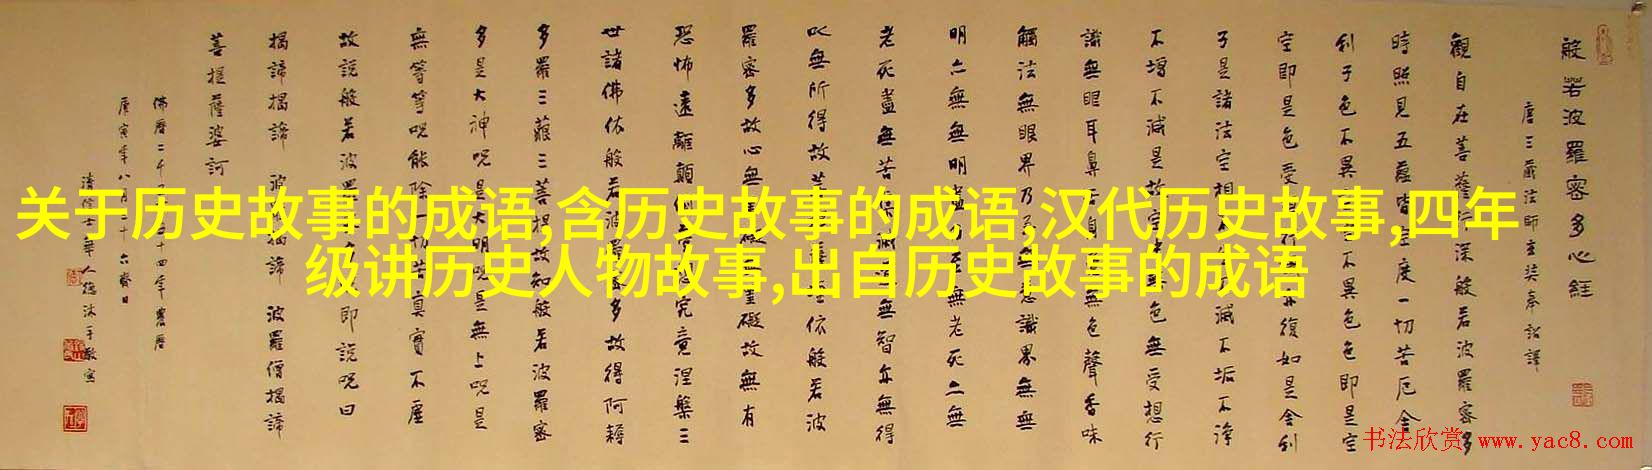 关于历史故事的成语,含历史故事的成语,汉代历史故事,四年
级讲历史人物故事,出自历史故事的成语
般若波羅密多心経
唐三藏法師玄奘奉詔譯
觀自在菩薩行深般若波羅密多
時照見五蘊皆空度一切苦厄舍
利子色不異空空不異色色即是空
空即是色受想行識亦復如是舍利
子是諸法空相不生不滅不垢不淨
不增不減是故空中無色無受想行
識無眼耳鼻舌身意無色聲香味
觸法無眼界乃至無意識界無無
明亦無無明盡乃至無老死亦無
老死盡無苦集滅道無智亦無得
以無所得故菩提薩埵依般若波
羅密多故心無罣礙無罣礙故無有
恐怖遠離顛倒夢想究竟涅槃三
世諸佛依般若波羅密多故得阿耨
多羅三藐三菩提故知般若波羅密
多是大神呪是大明呪是無上呪是
無等等呪能除一切苦真實不虛
故說般若波羅密多即說呪曰
揭諦揭諦 波羅揭諦 波羅僧揭諦
菩提薩婆訶
佛曆二千五十四年農曆
庚寅年八月二十六齋日
书法欣赏 www.yac8.com